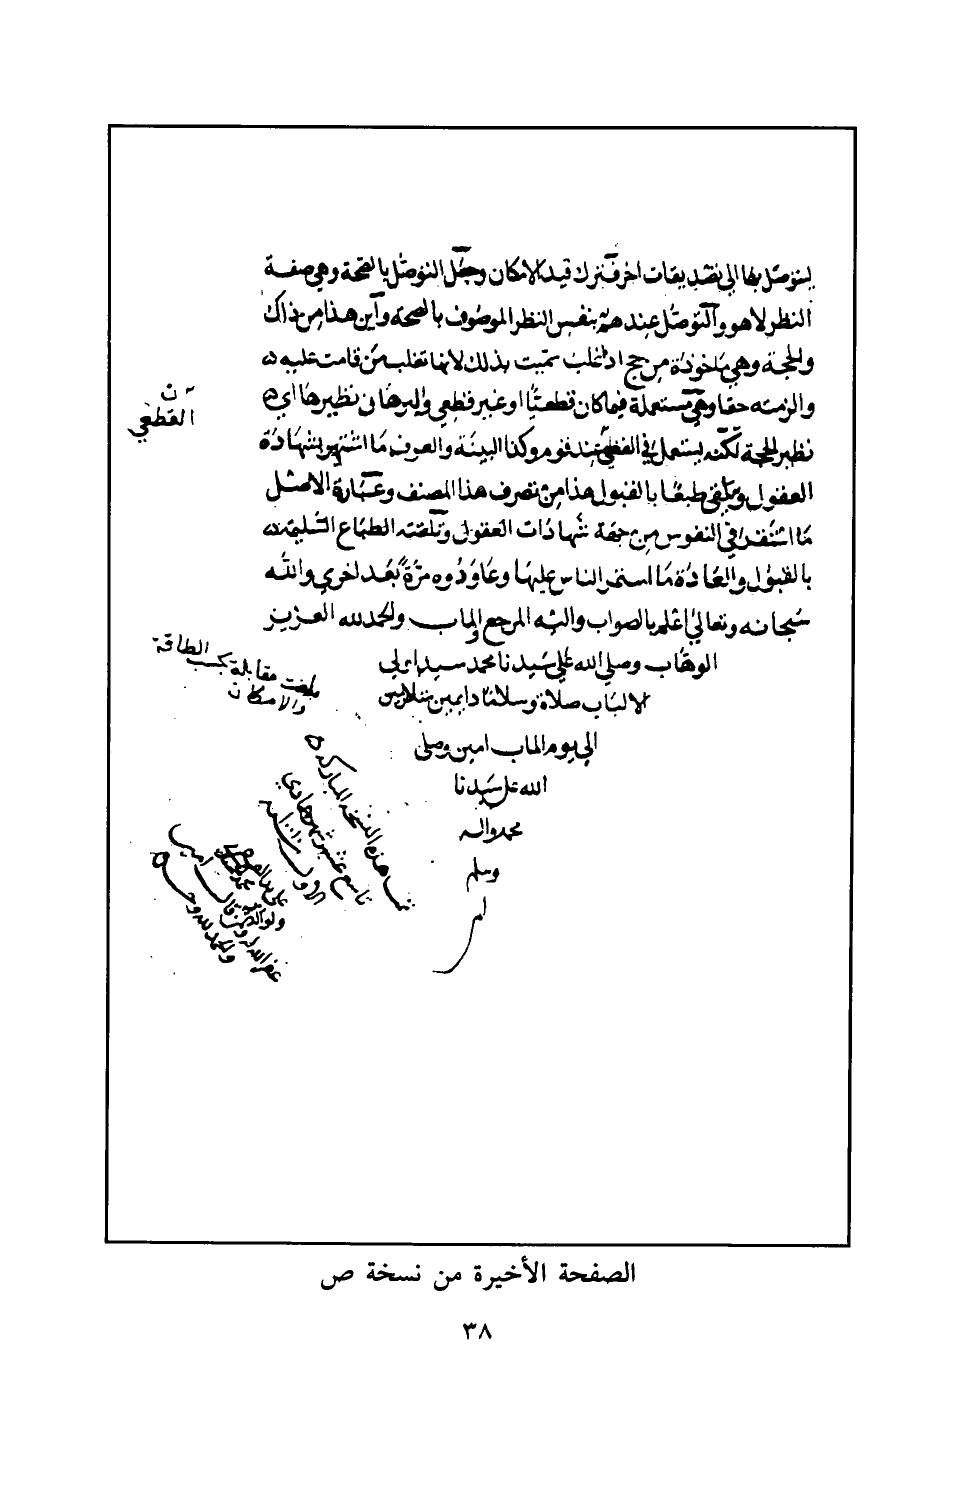 ليتوصل بها الى تصديقات اخر فترك قيد الامكان وجعل التوصل بالصحة وهي صفة
النظر لا هو والتوصل عندهم بنفس النظر الموصوف بالصحة واين هذا من ذاك
والحجة وهي ماخوذة من حج اذا غلب سميت بذلك لانها تغلب من قامت عليه
والزمته حقا وهي مستعملة فيما كان قطعيا او غير قطعي والبرهان نظيرها اي
نظير الحجة لكنه يستعمل في القطعي عند قوم وكذا البينة والعرف ما اشتهر بشهادة
العقول وتلقي طبعا بالقبول هذا من تصرف هذا المصنف وعبارة الاصل
ما استقر في النفوس من جهة شهادات العقول وتلقته الطباع السليمة
بالقبول والعادة ما استمر الناس عليها وعاودوه مرة بعد اخرى والله
سبحانه وتعالى اعلم بالصواب واليه المرجع والماب والحمد لله العزيز
الوهاب وصلى الله على سيدنا محمد سيد اولي
الالباب صلاة وسلاما دايمين متلازمين
الى يوم الماب امين وصلى
الله على سيدنا
محمد واله
وسلم
ن
القطعي
بلغت مقابلة بحسب الطاقة
والامكان
تمت هذه النسخة المباركة
تاسع عشر شهر جمادي
الاول
غفر الله له ولوالديه
والحمد لله وحده
الصفحة الأخيرة من نسخة ص
٣٨